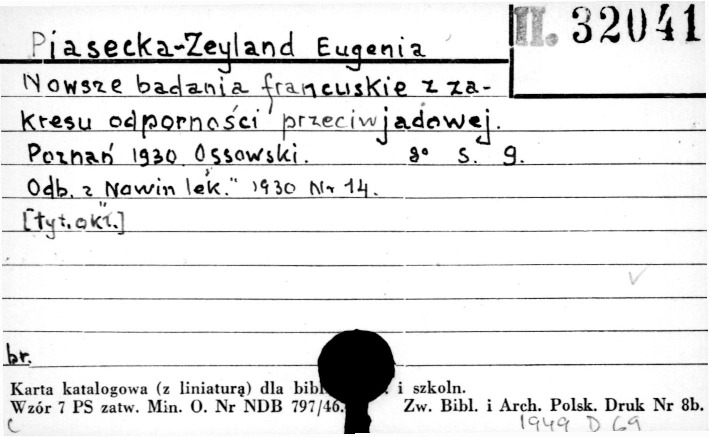 II. 32041
Piasecka-Zeyland Eugenia
Nowsze badania francuskie z za-
kresu odporności przeciwjadowej.
Poznań 1930 Ossowski. 8° s. 9.
Odb. z „Nowin lek." 1930 Nr 14.
[tyt. okł.]
br.
Karta katalogowa (z liniaturą) dla i szkoln.
Wzór 7 PS zatw. Min. O. Nr NDB 797/46. Zw. Bibl. i Arch. Polsk. Druk Nr 8b.
C 1949 D 69